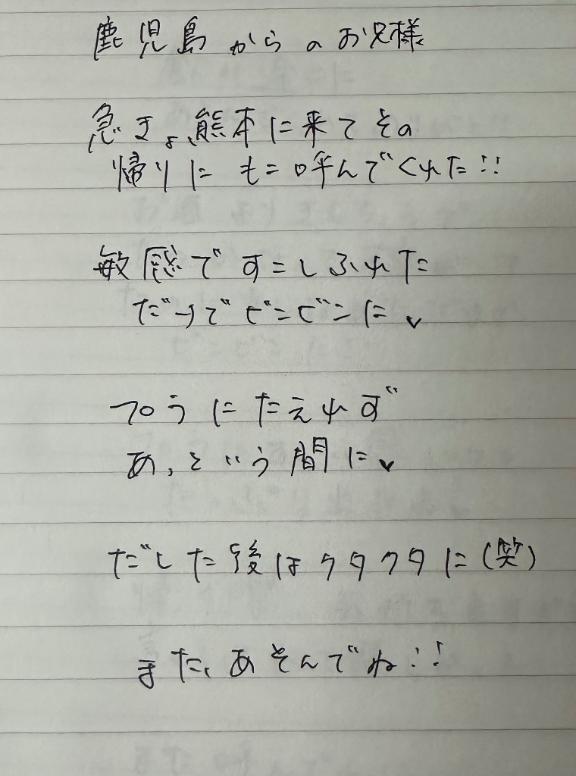 鹿児島からのお兄様
急きょ、熊本に来てその
帰りにも呼んでくれた!!
敏感ですこしふれた
だけでビンビンに♥
フロうにたえれず
あ、という間に♥
だした後はクタクタに(笑)
また、あそんでね!!